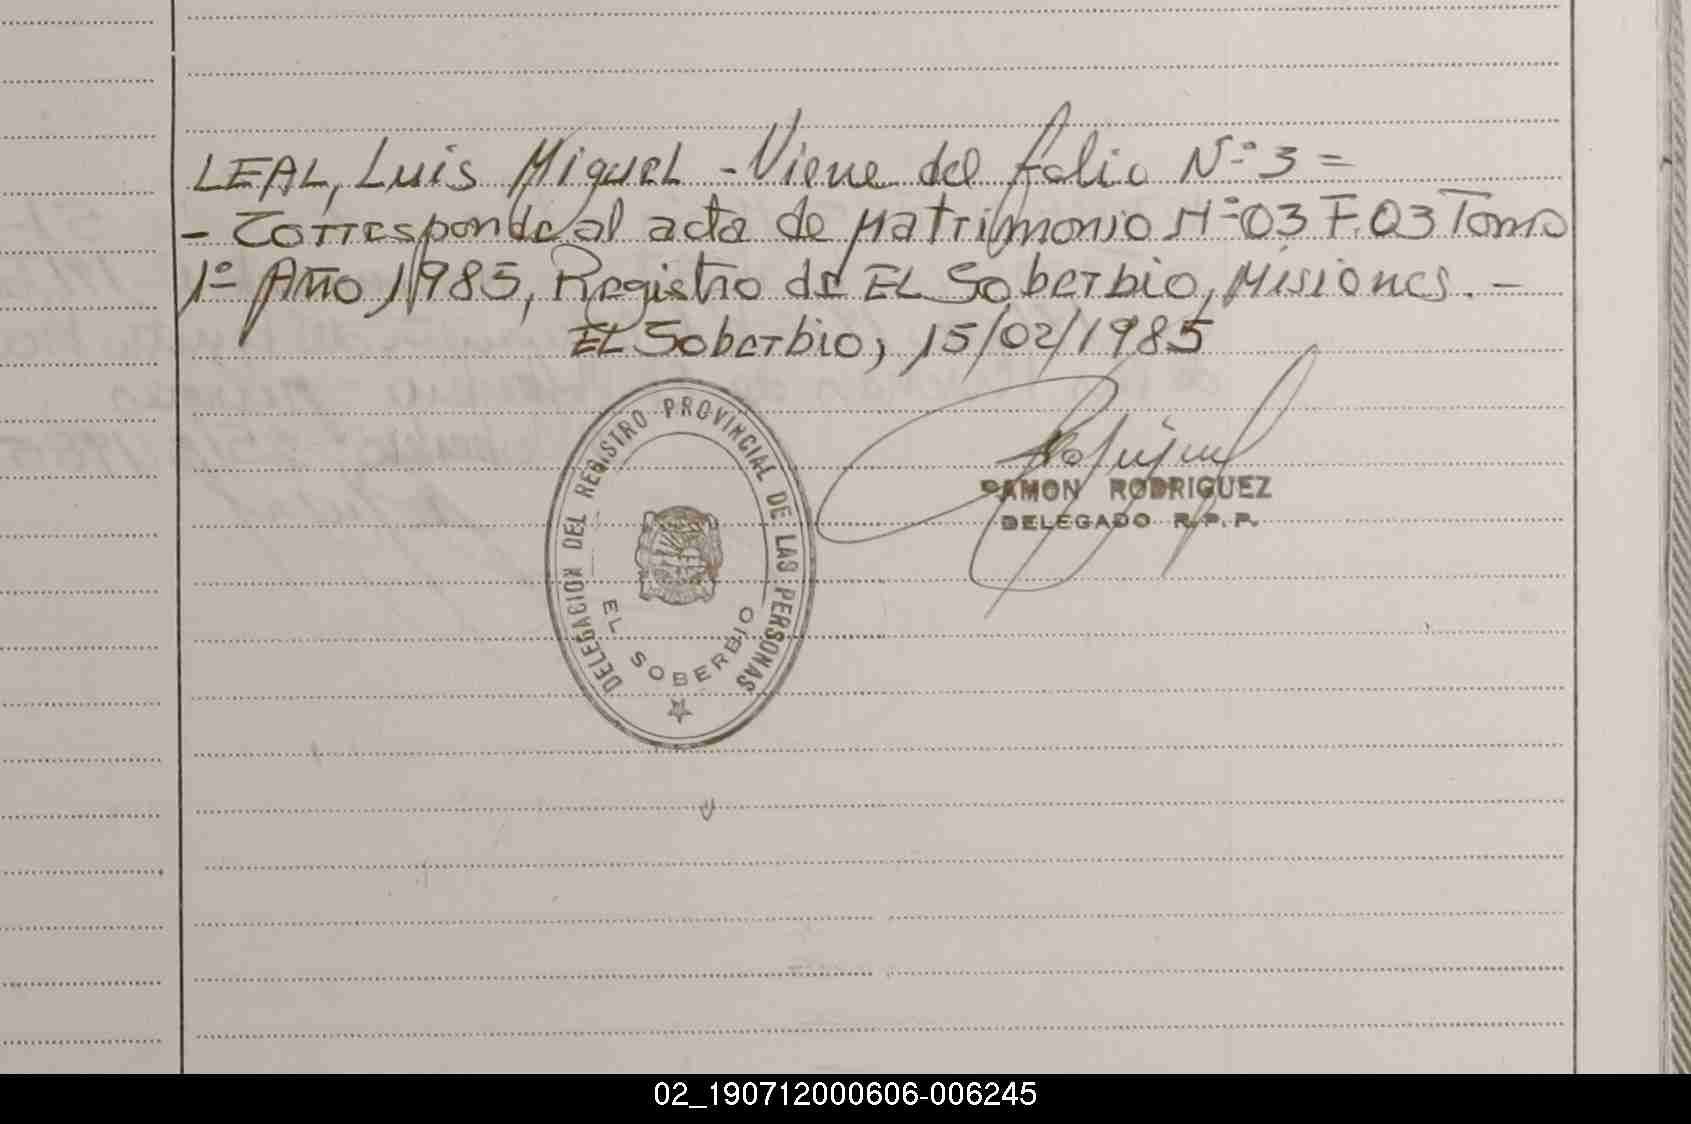 LEAL, Luis Miguel - Viene del folio N-° 3 =
- Corresponde al acta de Matrimonio N-° 03 F. 03 Tomo
1° Año 1985, Registro de El Soberbio, Misiones. -
El Soberbio, 15/02/1985
DELEGACION DEL REGISTRO PROVINCIAL DE LAS PERSONAS
EL SOBERBIO
RAMON RODRIGUEZ
DELEGADO R.P.P.
02_190712000606-006245